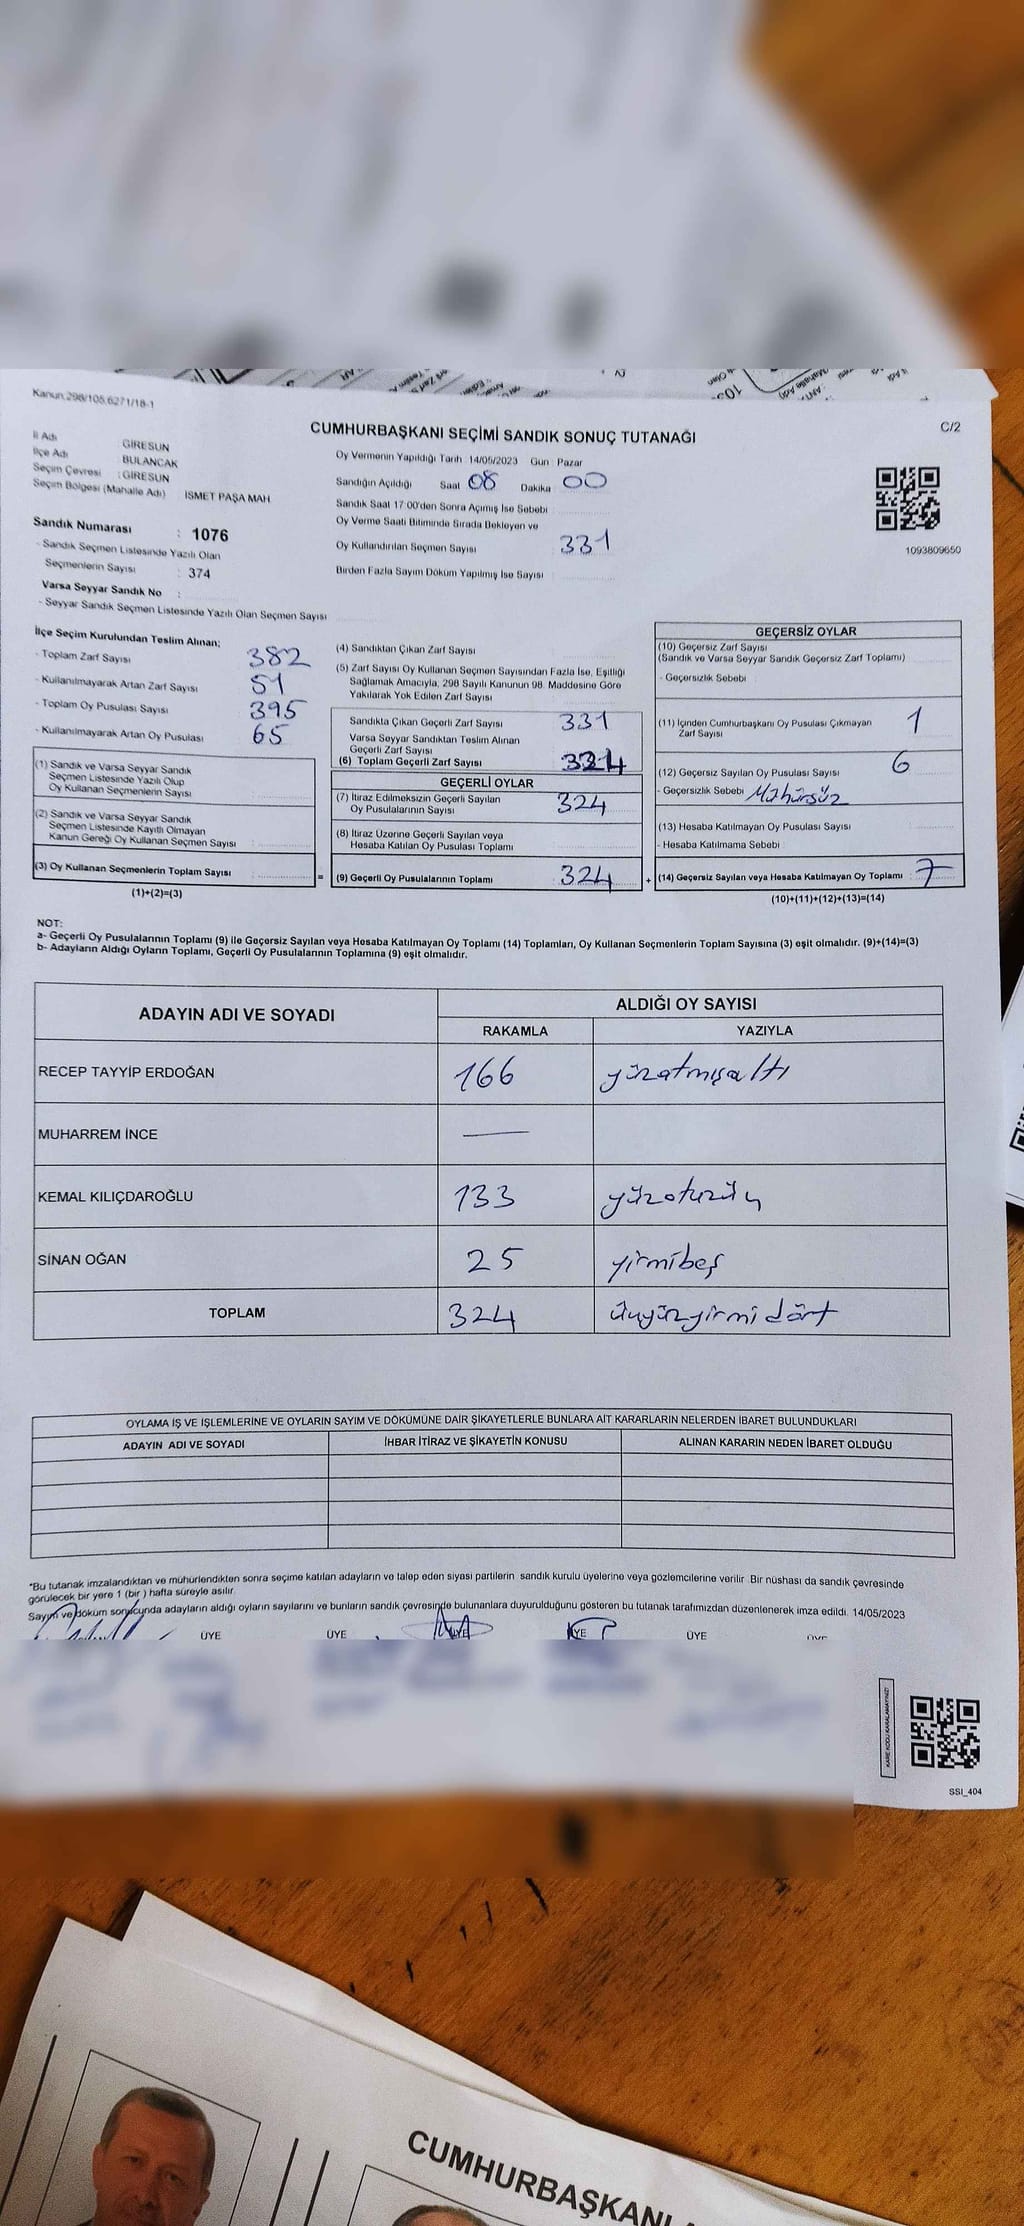 Kanun:298/105,6271/18-1
C/2
CUMHURBAŞKANI SEÇİMİ SANDIK SONUÇ TUTANAĞI
İl Adı GİRESUN
İlçe Adı BULANCAK
Seçim Çevresi : GİRESUN
Seçim Bölgesi (Mahalle Adı) İSMET PAŞA MAH
Sandık Numarası : 1076
- Sandık Seçmen Listesinde Yazılı Olan
Seçmenlerin Sayısı : 374
Varsa Seyyar Sandık No :
- Seyyar Sandık Seçmen Listesinde Yazılı Olan Seçmen Sayısı
Oy Vermenin Yapıldığı Tarih 14/05/2023 Gün Pazar
Sandığın Açıldığı Saat 08 Dakika 00
Sandık Saat 17.00'den Sonra Açımış İse Sebebi
Oy Verme Saati Bitiminde Sırada Bekleyen ve
Oy Kullandırılan Seçmen Sayısı 331
Birden Fazla Sayım Döküm Yapılmış İse Sayısı
1093809650
İlçe Seçim Kurulundan Teslim Alınan;
- Toplam Zarf Sayısı 382
- Kullanılmayarak Artan Zarf Sayısı 51
- Toplam Oy Pusulası Sayısı 395
- Kullanılmayarak Artan Oy Pusulası 65
(1) Sandık ve Varsa Seyyar Sandık
Seçmen Listesinde Yazılı Olup
Oy Kullanan Seçmenlerin Sayısı
(2) Sandık ve Varsa Seyyar Sandık
Seçmen Listesinde Kayıtlı Olmayan
Kanun Gereği Oy Kullanan Seçmen Sayısı
(3) Oy Kullanan Seçmenlerin Toplam Sayısı =
(1)+(2)=(3)
(4) Sandıktan Çıkan Zarf Sayısı
(5) Zarf Sayısı Oy Kullanan Seçmen Sayısından Fazla İse, Eşitliği
Sağlamak Amacıyla, 298 Sayılı Kanunun 98. Maddesine Göre
Yakılarak Yok Edilen Zarf Sayısı
Sandıkta Çıkan Geçerli Zarf Sayısı 331
Varsa Seyyar Sandıktan Teslim Alınan
Geçerli Zarf Sayısı
(6) Toplam Geçerli Zarf Sayısı
GEÇERLİ OYLAR
(7) İtiraz Edilmeksizin Geçerli Sayılan
Oy Pusulalarının Sayısı 324
(8) İtiraz Üzerine Geçerli Sayılan veya
Hesaba Katılan Oy Pusulası Toplamı
(9) Geçerli Oy Pusulalarının Toplamı 324 +
GEÇERSİZ OYLAR
(10) Geçersiz Zarf Sayısı
(Sandık ve Varsa Seyyar Sandık Geçersiz Zarf Toplamı)
- Geçersizlik Sebebi
(11) İçinden Cumhurbaşkanı Oy Pusulası Çıkmayan
Zarf Sayısı 1
(12) Geçersiz Sayılan Oy Pusulası Sayısı 6
- Geçersizlik Sebebi Mühürsüz
(13) Hesaba Katılmayan Oy Pusulası Sayısı
- Hesaba Katılmama Sebebi
(14) Geçersiz Sayılan veya Hesaba Katılmayan Oy Toplamı 7
(10)+(11)+(12)+(13)=(14)
NOT:
a- Geçerli Oy Pusulalarının Toplamı (9) ile Geçersiz Sayılan veya Hesaba Katılmayan Oy Toplamı (14) Toplamları, Oy Kullanan Seçmenlerin Toplam Sayısına (3) eşit olmalıdır. (9)+(14)=(3)
b- Adayların Aldığı Oyların Toplamı, Geçerli Oy Pusulalarının Toplamına (9) eşit olmalıdır.
ADAYIN ADI VE SOYADI ALDIĞI OY SAYISI
RAKAMLA YAZIYLA
RECEP TAYYİP ERDOĞAN 166 yüzatmışaltı
MUHARREM İNCE —
KEMAL KILIÇDAROĞLU 133 yüzotuzüç
SİNAN OĞAN 25 yirmibeş
TOPLAM 324 üçyüzyirmidört
OYLAMA İŞ VE İŞLEMLERİNE VE OYLARIN SAYIM VE DÖKÜMÜNE DAİR ŞİKAYETLERLE BUNLARA AİT KARARLARIN NELERDEN İBARET BULUNDUKLARI
ADAYIN ADI VE SOYADI İHBAR İTİRAZ VE ŞİKAYETİN KONUSU ALINAN KARARIN NEDEN İBARET OLDUĞU
*Bu tutanak imzalandıktan ve mühürlendikten sonra seçime katılan adayların ve talep eden siyasi partilerin sandık kurulu üyelerine veya gözlemcilerine verilir. Bir nüshası da sandık çevresinde
görülecek bir yere 1 (bir) hafta süreyle asılır.
Sayım ve döküm sonucunda adayların aldığı oyların sayılarını ve bunların sandık çevresinde bulunanlara duyurulduğunu gösteren bu tutanak tarafımızdan düzenlenerek imza edildi. 14/05/2023
ÜYE ÜYE ÜYE ÜYE ÜYE ÜYE
KARE KODU KARALAMAYINIZ!
SSI_404
CUMHURBAŞKANI